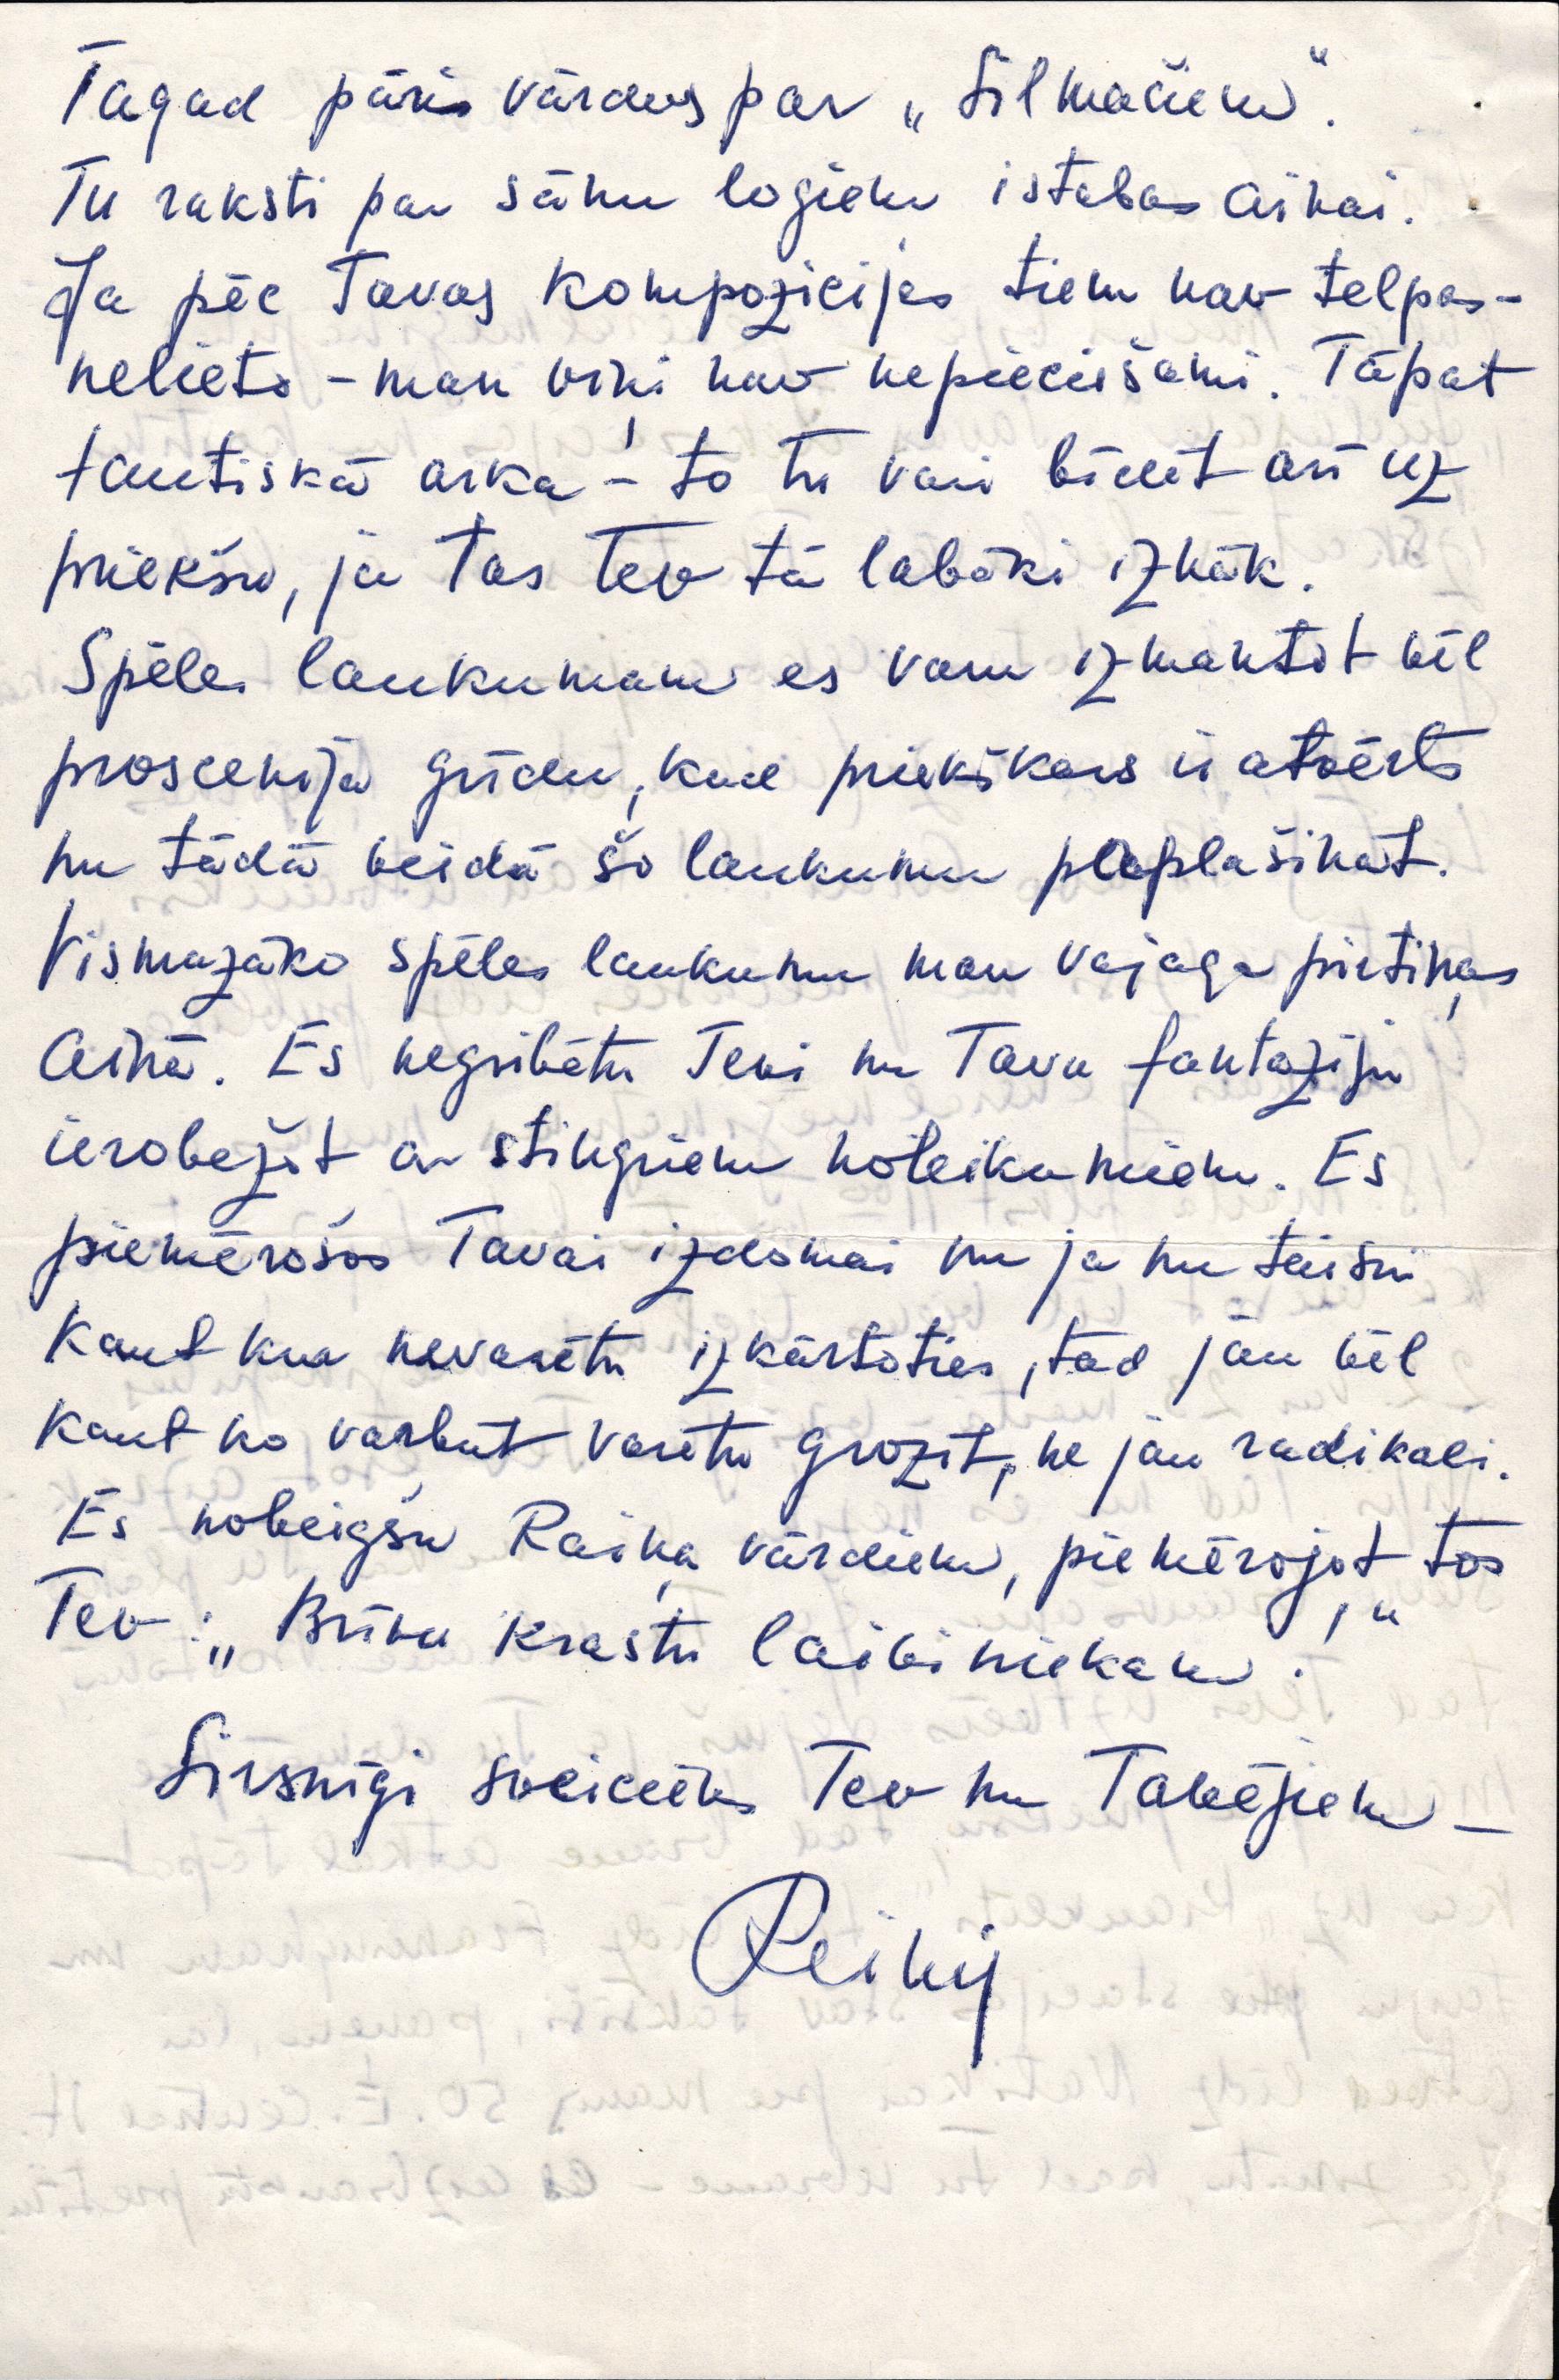 Tagad pāris vārdus par „Silmačiem".
Tu raksti par sānu logiem istabas ainai.
Ja pēc Tavas kompozicijas tiem nav telpas -
nelieto - man viņi nav nepieciešami. Tāpat
tautiskā arka - to tu vari bīdīt arī uz
priekšu, ja tas Tev tā labāki iznāk.
Spēles laukumam es varu izmantot vēl
proscenija grīdu, kad priekškars ir atvērts
un tādā veidā šo laukumu paplašināt.
Vismazāko spēles laukumu man vajaga pirtiņas
ainā. Es negribētu Tevi un Tavu fantaziju
ierobežot ar stingriem noteikumiem. Es
piemērošos Tavai izdomai un ja nu taisni
kaut kur nevarētu izkārtoties, tad jau vēl
kaut ko varbūt varētu grozīt, ne jau radikali.
Es nobeigšu Raiņa vārdiem, piemērojot tos
Tev: „Brīvu krastu laiviniekam!"
Sirsnīgi sveicieks Tev un Tavējiem -
Reinis